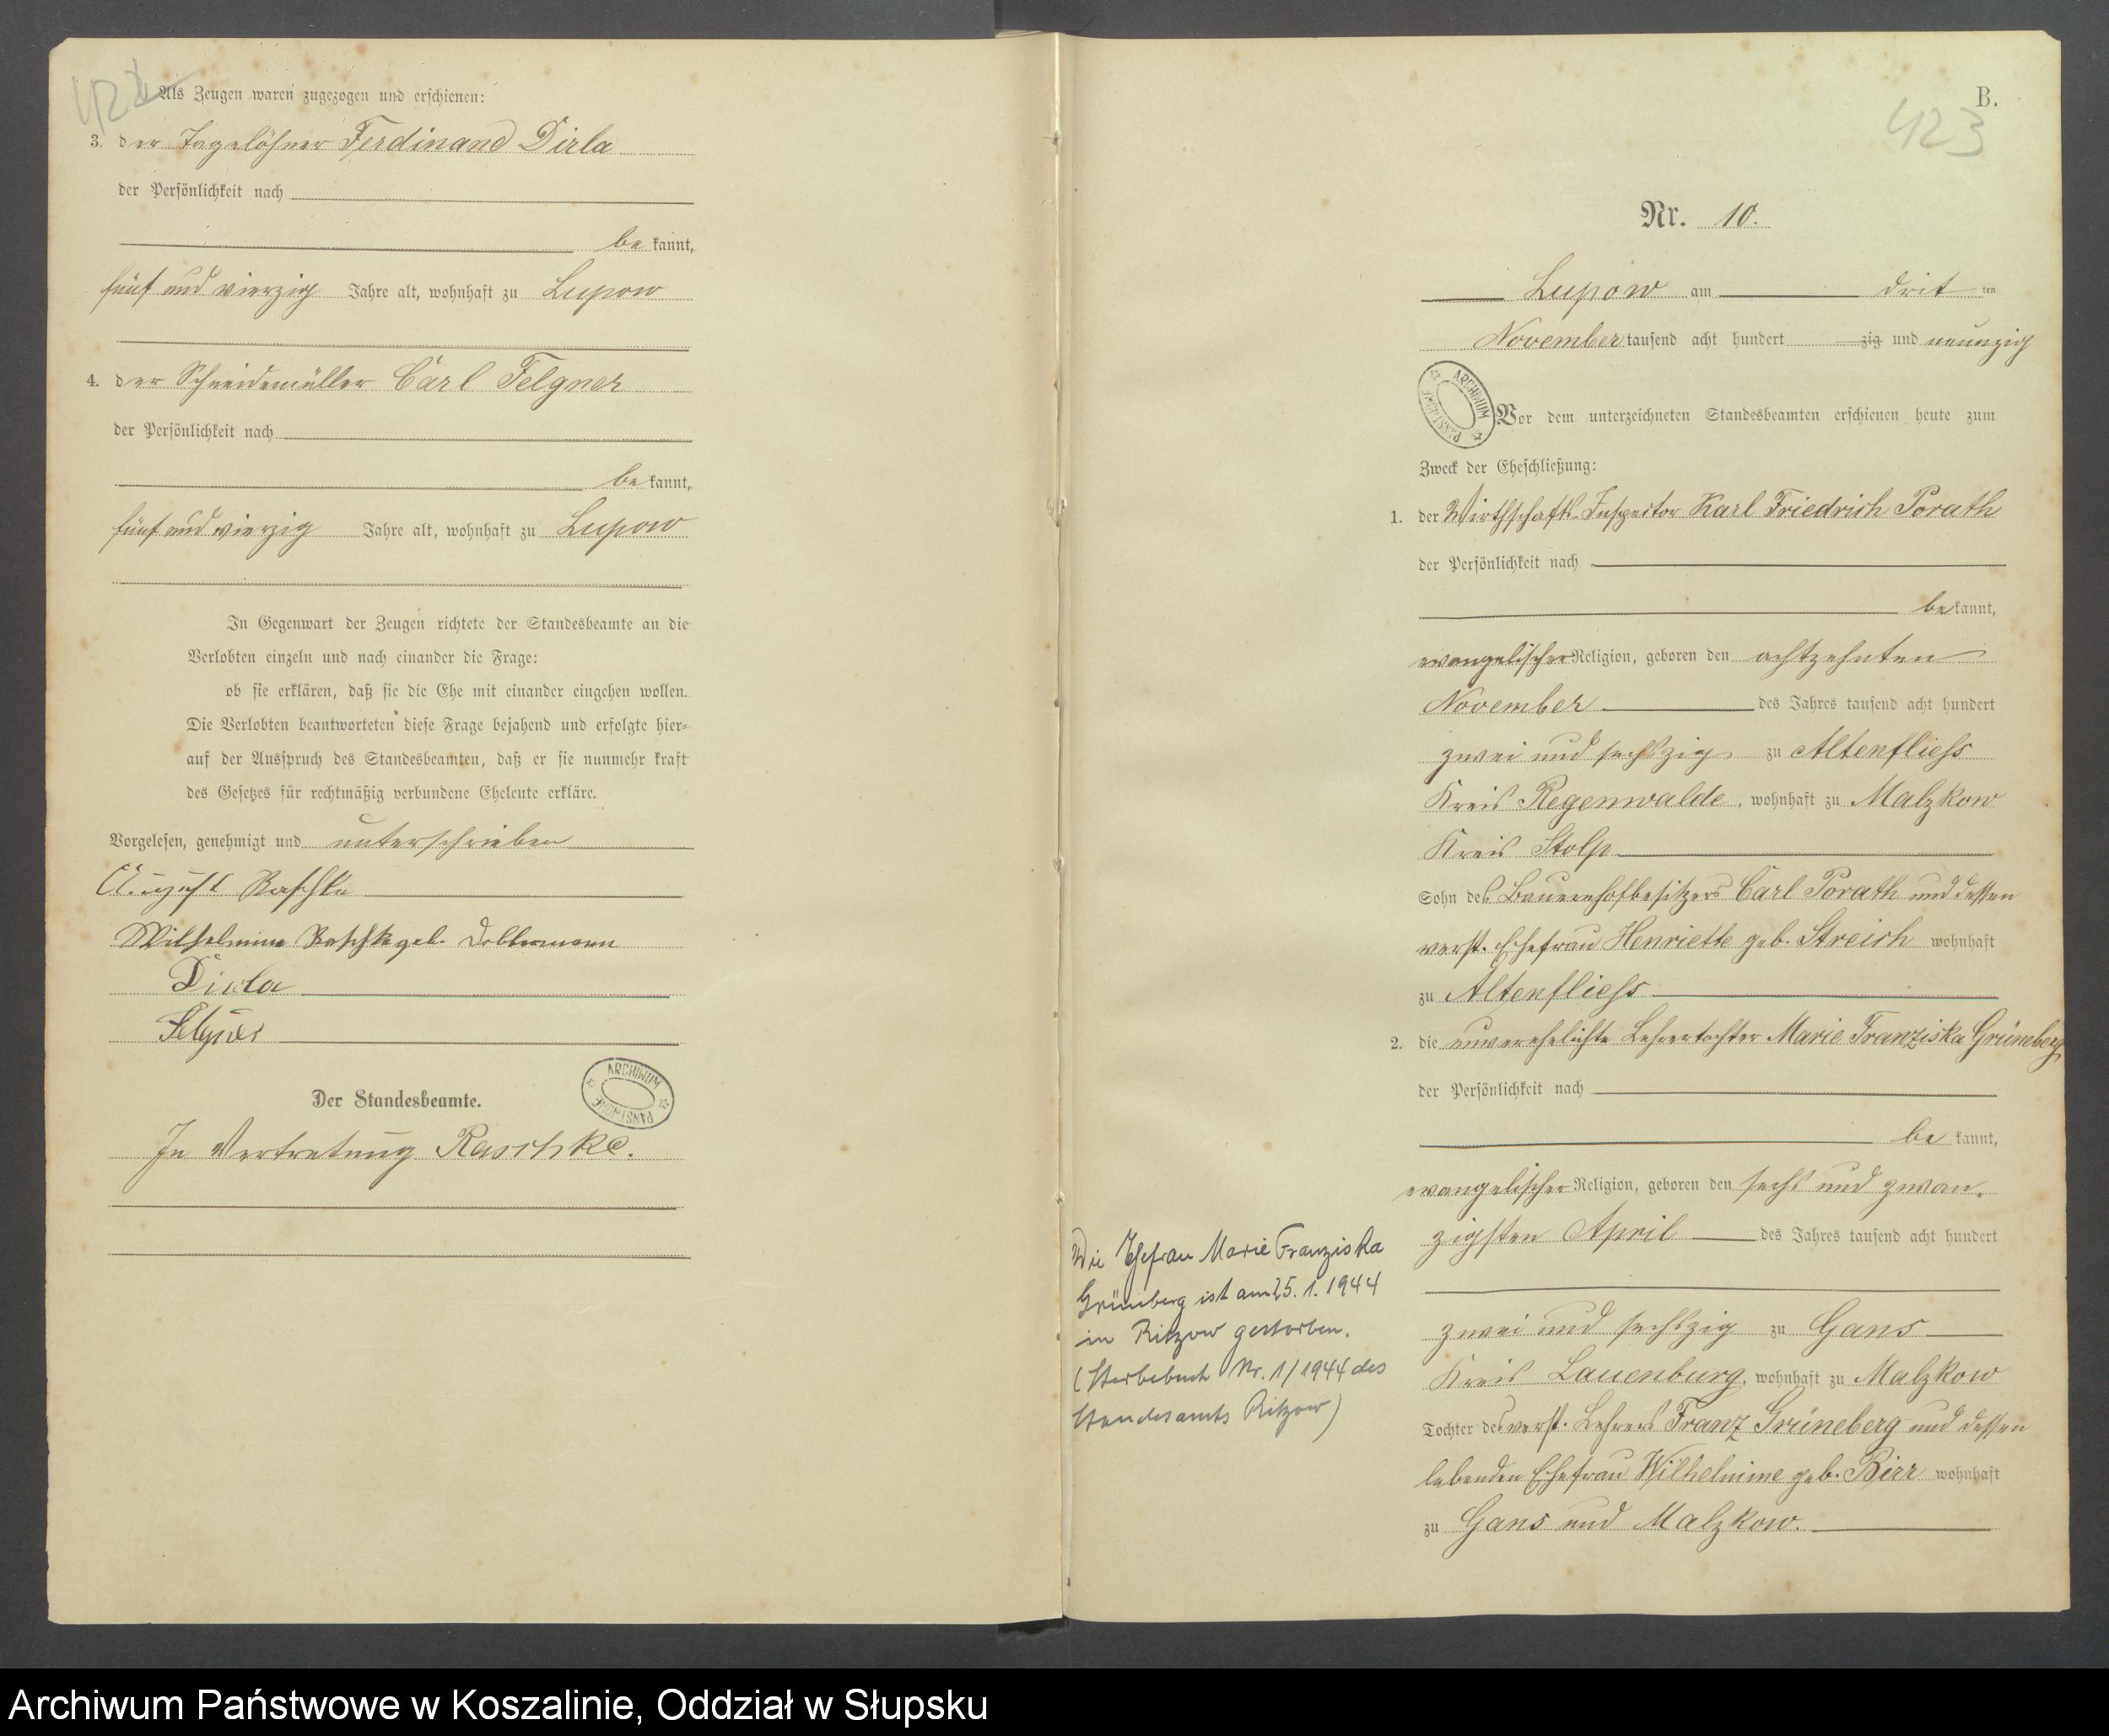 422
Als Zeugen waren zugezogen und erschienen:
3. der Tagelöhner Ferdinand Dirla
der Persönlichkeit nach
bekannt,
fünf und vierzig Jahre alt, wohnhaft zu Lupow
4. der Schneidemüller Carl Felgner
der Persönlichkeit nach
bekannt,
fünf und vierzig Jahre alt, wohnhaft zu Lupow
In Gegenwart der Zeugen richtete der Standesbeamte an die
Verlobten einzeln und nach einander die Frage:
ob sie erklären, daß sie die Ehe mit einander eingehen wollen.
Die Verlobten beantworteten diese Frage bejahend und erfolgte hier-
auf der Ausspruch des Standesbeamten, daß er sie nunmehr kraft
des Gesetzes für rechtmäßig verbundene Eheleute erkläre.
Vorgelesen, genehmigt und unterschrieben
August Raschke
Wilhelmine Raschke geb. Dobbermann
Dirla
Felgner
ARCHIWUM PAŃSTWOWE
Der Standesbeamte.
In Vertretung Raschke.
B.
423
Nr. 10.
Lupow am dritten
November tausend acht hundert zig und neunzig
ARCHIWUM PAŃSTWOWE
Vor dem unterzeichneten Standesbeamten erschienen heute zum
Zweck der Eheschließung:
1. der Wirthschafts-Inspector Karl Friedrich Porath
der Persönlichkeit nach
bekannt,
evangelischer Religion, geboren den achtzehnten
November des Jahres tausend acht hundert
zwei und sechszig zu Altenfliess
Kreis Regenwalde, wohnhaft zu Malzkow
Kreis Stolp
Sohn des Bauernhofbesitzers Carl Porath und dessen
verst. Ehefrau Henriette geb. Streich wohnhaft
zu Altenfliess
2. die unverehelichte Lehrertochter Marie Franziska Grüneberg
der Persönlichkeit nach
bekannt,
evangelischer Religion, geboren den sechs und zwan-
zigsten April des Jahres tausend acht hundert
zwei und sechszig zu Gans
Kreis Lauenburg, wohnhaft zu Malzkow
Tochter des verst. Lehrers Franz Grüneberg und dessen
lebenden Ehefrau Wilhelmine geb. Birr wohnhaft
zu Gans und Malzkow.
Die Ehefrau Marie Franziska
Grüneberg ist am 25. 1. 1944
in Ritzow gestorben.
(Sterbebuch Nr. 1/1944 des
Standesamts Ritzow)
Archiwum Państwowe w Koszalinie, Oddział w Słupsku